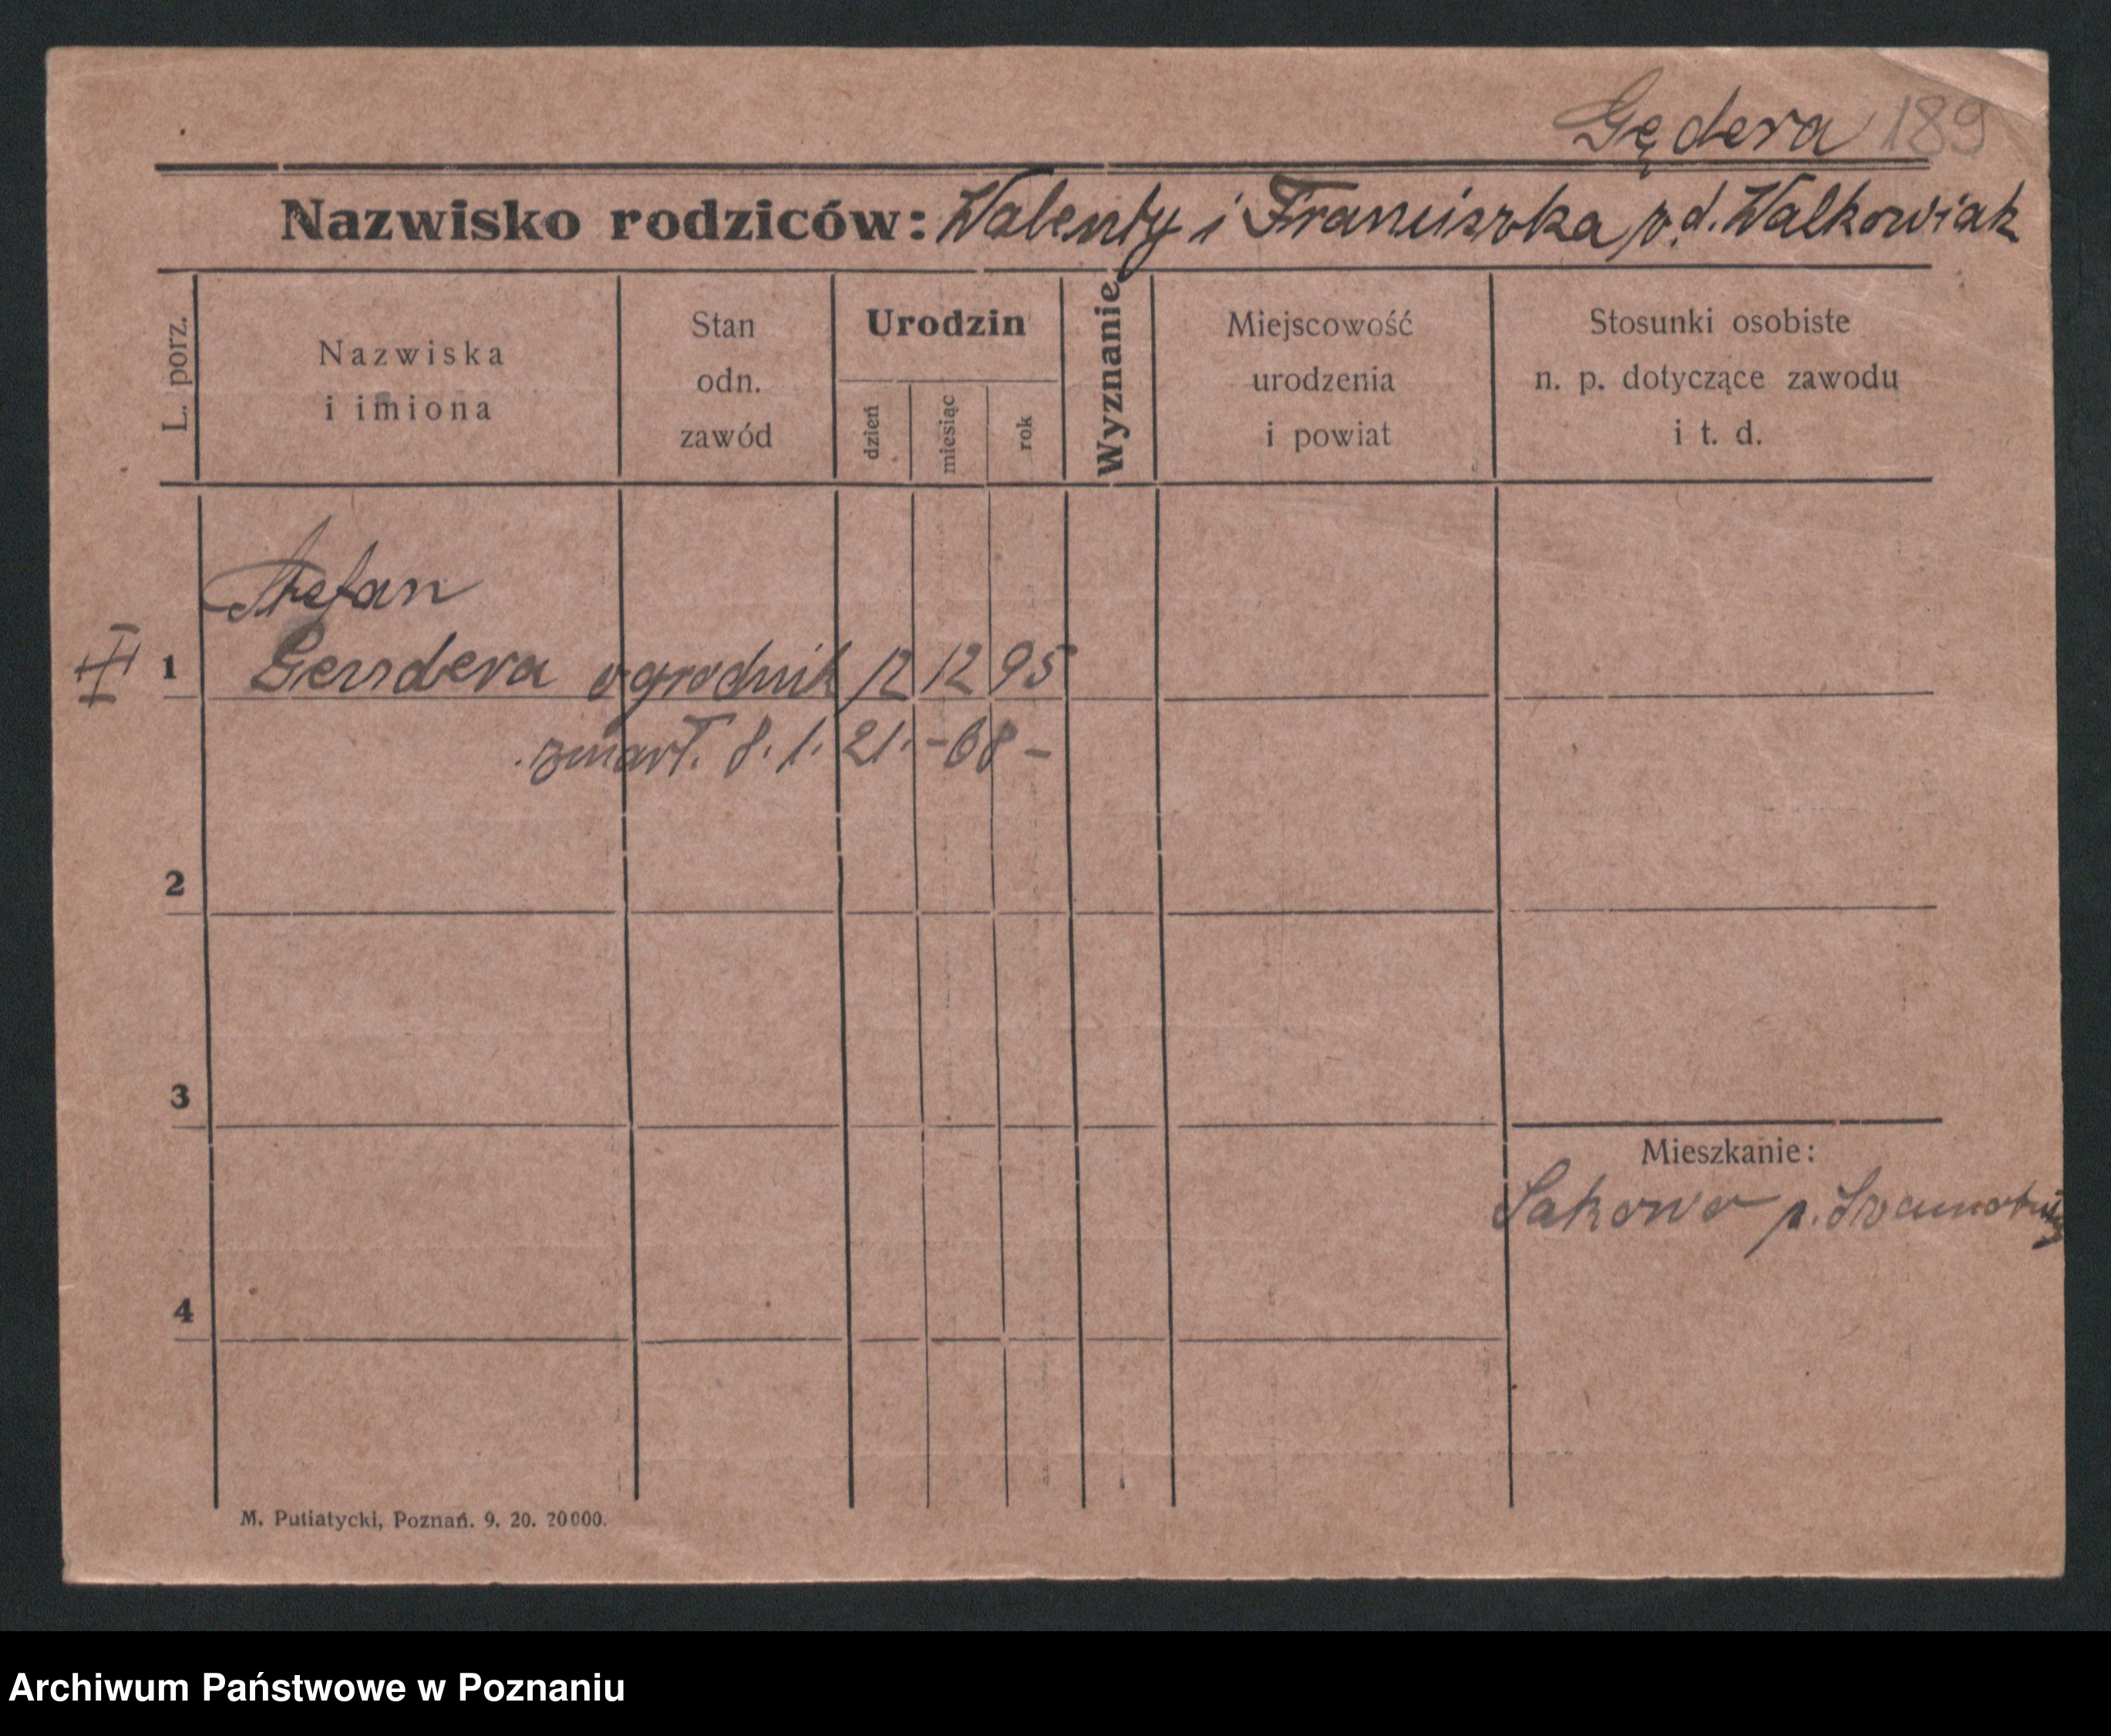 Gędera 189
Nazwisko rodziców: Walenty i Franciszka p.d. Walkowiak
L. porz.
Nazwiska
i imiona
Stan
odn.
zawód
Urodzin
dzień
miesiąc
rok
Wyznanie
Miejscowość
urodzenia
i powiat
Stosunki osobiste
n. p. dotyczące zawodu
i t. d.
Stefan
1 Gendera ogrodnik 12 12 95
zmarł. 8. 1. 21. -68-
2
3
Mieszkanie:
p.
4
M. Putiatycki, Poznań. 9. 20. 20000.
Archiwum Państwowe w Poznaniu